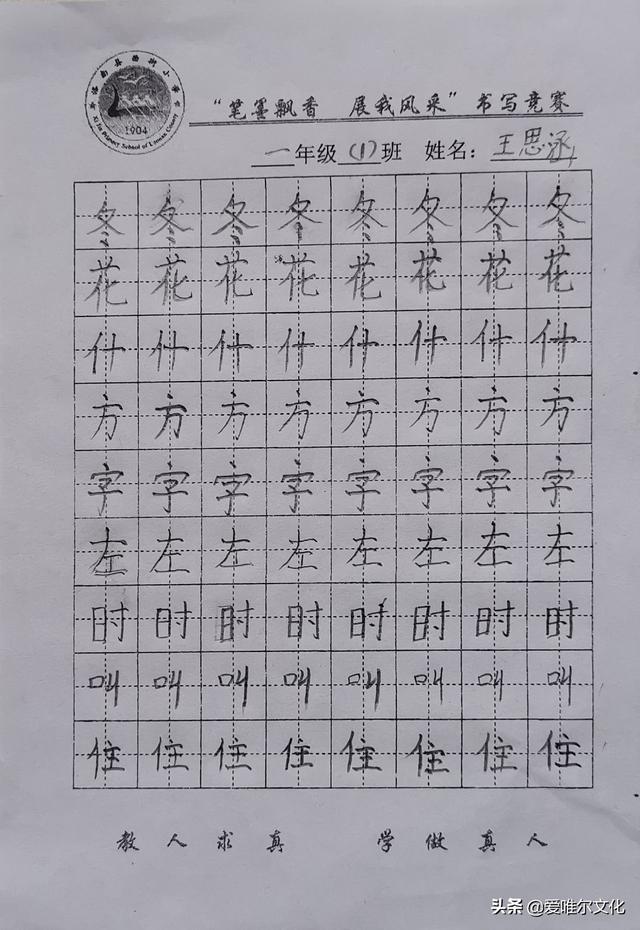 "笔墨飘香 展我风采"书写竞赛
一年级(1)班 姓名:王思涵
1904
冬冬冬冬冬冬冬冬
花花花花花花花花
什什什什什什什什
方方方方方方方方
字字字字字字字字
左左左左左左左左
时时时时时时时时
叫叫叫叫叫叫叫叫
住住住住住住住住
教人求真 学做真人
头条 @爱唯尔文化